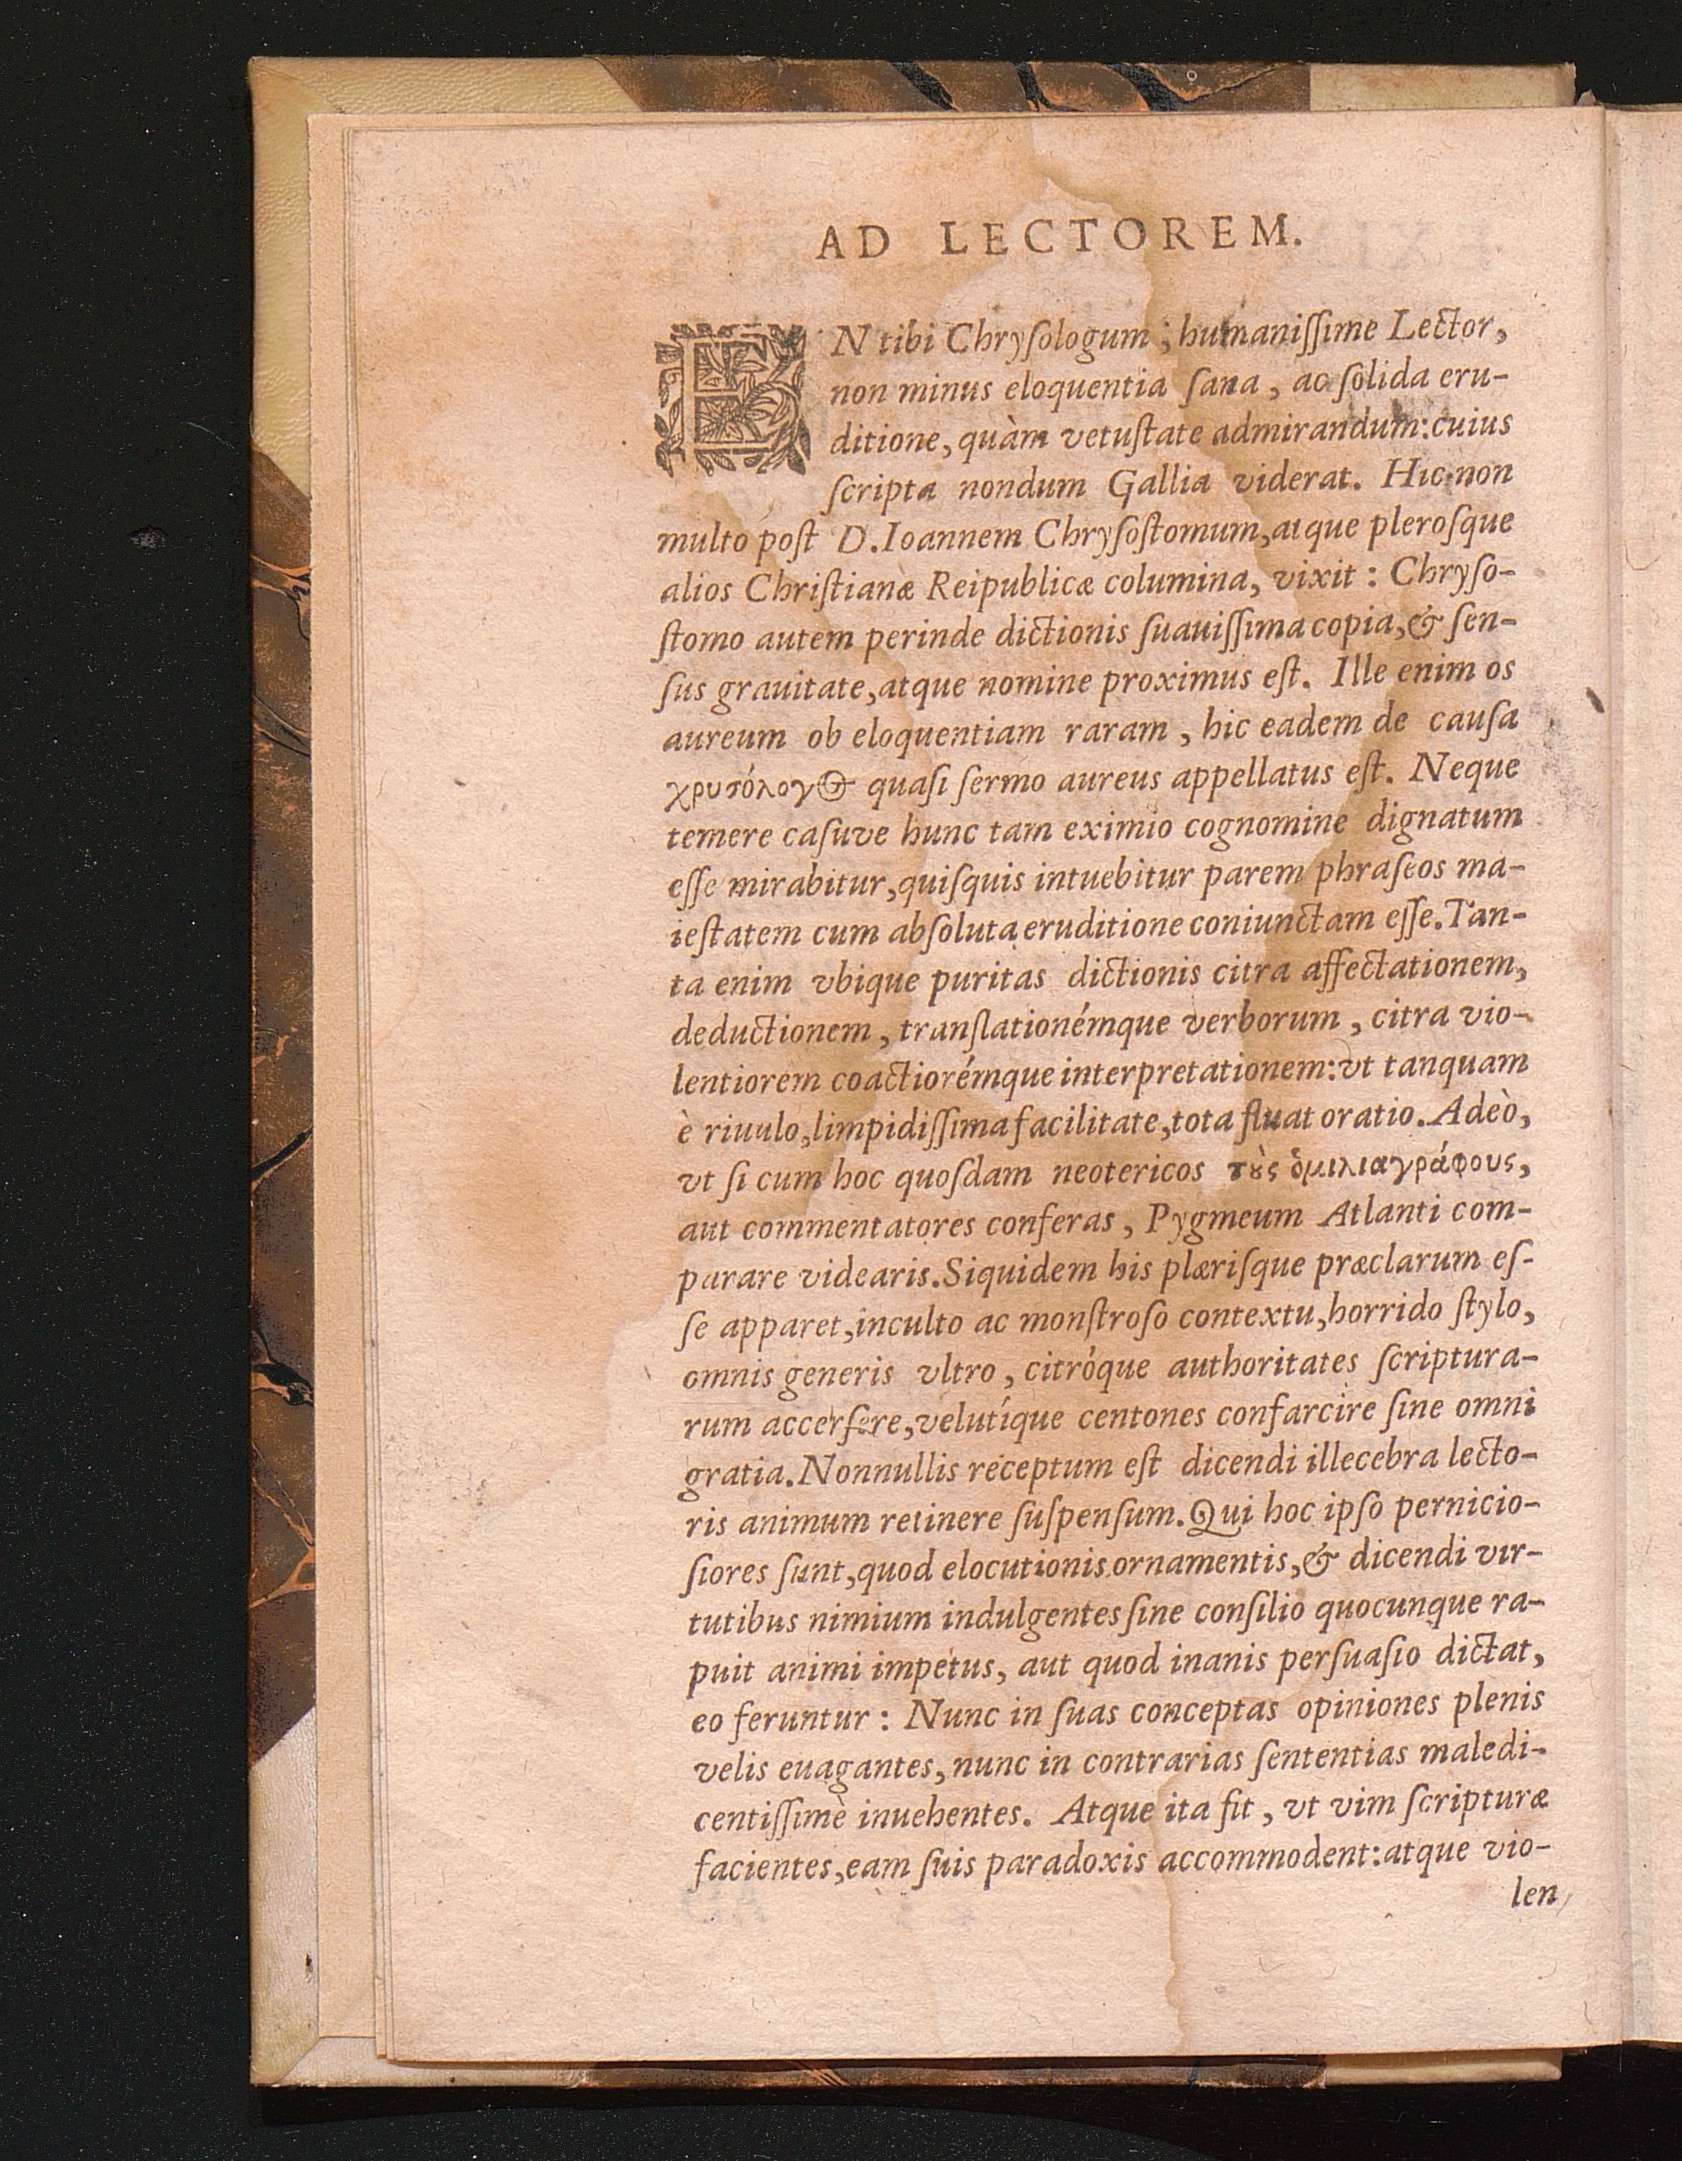 AD LECTOREM.
EN tibi Chryſologum ; humaniſſime Lector,
non minus eloquentia ſana, ac ſolida eru-
ditione, quàm vetuſtate admirandum: cuius
ſcripta nondum Gallia viderat. Hic non
multo poſt D. Ioannem Chryſoſtomum, atque pleroſque
alios Chriſtianæ Reipublicæ columina, vixit : Chryſo-
ſtomo autem perinde dictionis ſuauiſſima copia, & ſen-
ſus grauitate, atque nomine proximus eſt. Ille enim os
aureum ob eloquentiam raram, hic eadem de cauſa
χρυσόλογος quaſi ſermo aureus appellatus eſt. Neque
temere caſuve hunc tam eximio cognomine dignatum
eſſe mirabitur, quiſquis intuebitur parem phraſeos ma-
ieſtatem cum abſoluta eruditione coniunctam eſſe. Tan-
ta enim vbique puritas dictionis citra affectationem,
deductionem, tranſlationémque verborum, citra vio-
lentiorem coactiorémque interpretationem: vt tanquam
è riuulo, limpidiſſima facilitate, tota fluat oratio. Adeò,
vt ſi cum hoc quoſdam neotericos τοὺς ὁμιλιαγράφους,
aut commentatores conferas, Pygmeum Atlanti com-
parare videaris. Siquidem his plæriſque præclarum eſ-
ſe apparet, inculto ac monſtroſo contextu, horrido ſtylo,
omnis generis vltro, citróque authoritates ſcriptura-
rum accerſere, velutíque centones confarcire ſine omni
gratia. Nonnullis receptum eſt dicendi illecebra lecto-
ris animum retinere ſuſpenſum. Qui hoc ipſo pernicio-
ſiores ſunt, quod elocutionis ornamentis, & dicendi vir-
tutibus nimium indulgentes ſine conſilio quocunque ra-
puit animi impetus, aut quod inanis perſuaſio dictat,
eo feruntur : Nunc in ſuas conceptas opiniones plenis
velis euagantes, nunc in contrarias ſententias maledi-
centiſſimè inuehentes. Atque ita fit, vt vim ſcripturæ
facientes, eam ſuis paradoxis accommodent: atque vio-
len